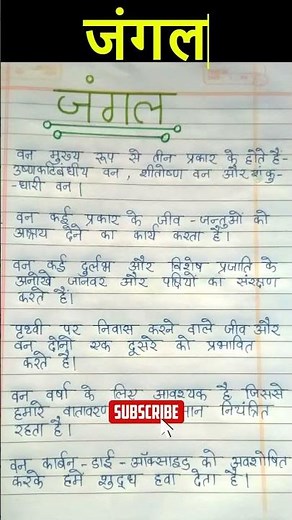 जंगल
जंगल
वन मुख्य रूप से तीन प्रकार के होते है-
उष्णकटिबंधीय वन, शीतोष्ण वन और शंकु-
-धारी वन।
वन कई प्रकार के जीव-जन्तुओं को
आश्रय देने का कार्य करता है।
वन कई दुर्लभ और विशेष प्रजाति के
अनोखे जानवर और पक्षियों का संरक्षण
करते हैं।
पृथ्वी पर निवास करने वाले जीव और
वन दोनों एक दूसरे को प्रभावित
करते है।
वन वर्षा के लिए आवश्यक है जिससे
हमारे वातावरण मान नियंत्रित
SUBSCRIBE
रहता है।
वन कार्बन-डाई-ऑक्साइड को अवशोषित
करके हमें शुद्ध हवा देता है।